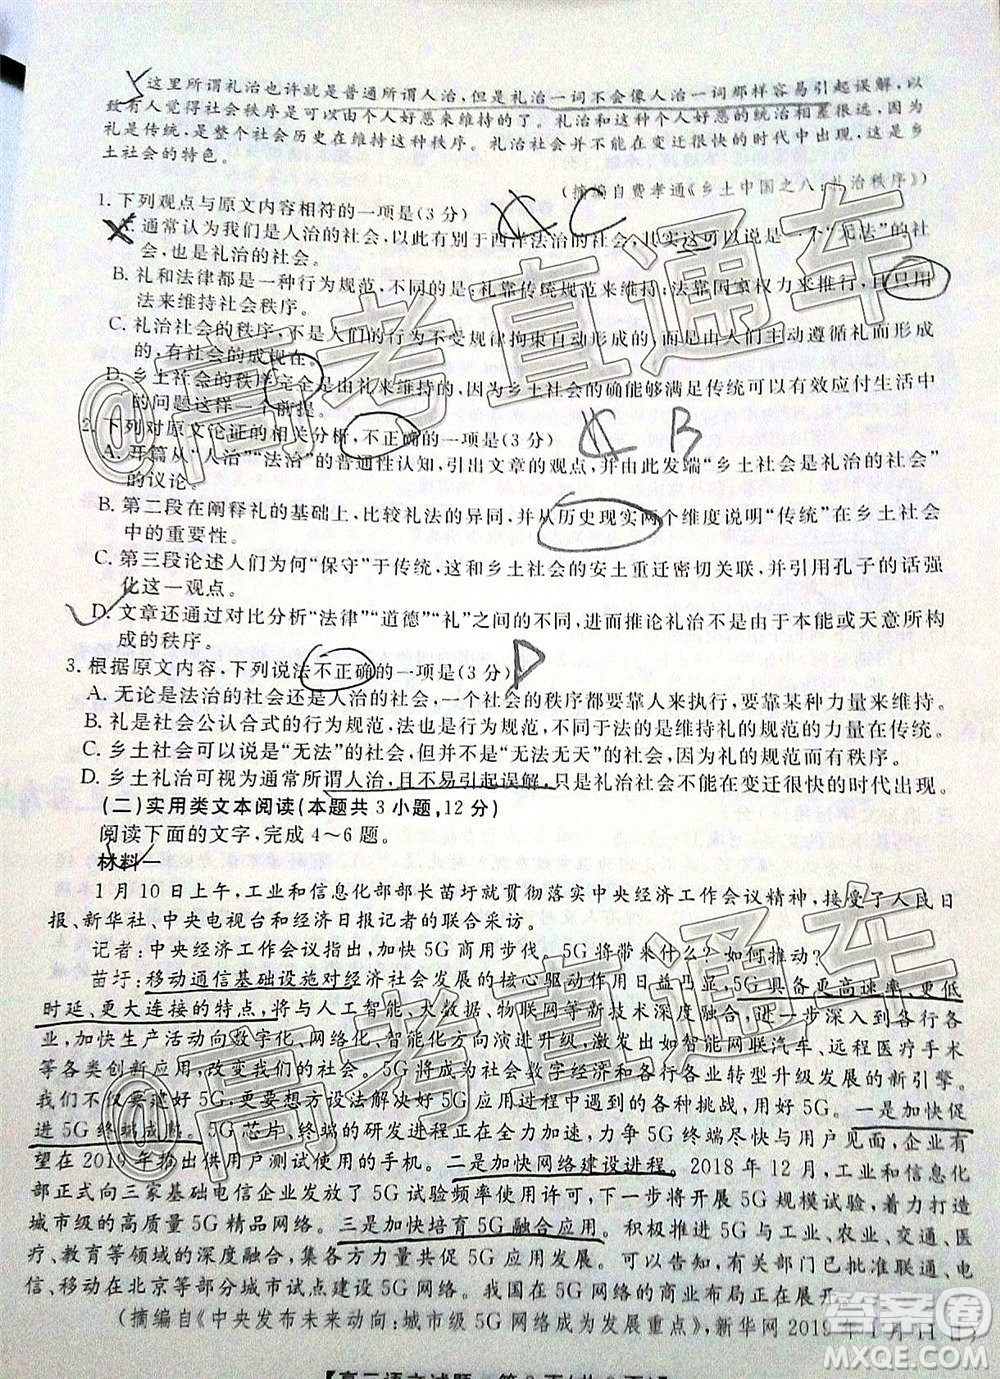 这里所谓礼治也许就是普通所谓人治,但是礼治一词不会像人治一词那样容易引起误解,以
致有人觉得社会秩序是可以由个人好恶来维持的了。礼治和这种个人好恶的统治相差很远,因为
礼是传统,是整个社会历史在维持这种秩序。礼治社会并不能在变迁很快的时代中出现,这是乡
土社会的特色。
(摘编自费孝通《乡土中国之八:礼治秩序》)
1. 下列观点与原文内容相符的一项是(3分)
C
A. 通常认为我们是人治的社会,以此有别于西洋法治的社会,其实这可以说是一个“无法”的社
会,是礼治的社会。
B. 礼和法律都是一种行为规范,不同的是:礼靠传统规范来维持;法靠国家权力来推行,且只用
法来维持社会秩序。
C. 礼治社会的秩序,不是人们的行为不受规律拘束自动形成的,而是由人们主动遵循礼而形成
的,有社会的成规在。
D. 乡土社会的秩序完全是由礼来维持的,因为乡土社会的确能够满足传统可以有效应付生活中
的问题这样一个前提。
2. 下列对原文论证的相关分析,不正确的一项是(3分)
B
A. 开篇从“人治”“法治”的普通性认知,引出文章的观点,并由此发端“乡土社会是礼治的社会”
的议论。
B. 第二段在阐释礼的基础上,比较礼法的异同,并从历史现实两个维度说明“传统”在乡土社会
中的重要性。
C. 第三段论述人们为何“保守”于传统,这和乡土社会的安土重迁密切关联,并引用孔子的话强
化这一观点。
D. 文章还通过对比分析“法律”“道德”“礼”之间的不同,进而推论礼治不是由于本能或天意所构
成的秩序。
3. 根据原文内容,下列说法不正确的一项是(3分)
D
A. 无论是法治的社会还是人治的社会,一个社会的秩序都要靠人来执行,要靠某种力量来维持。
B. 礼是社会公认合式的行为规范,法也是一种行为规范,不同于法的是维持礼的力量在传统。
C. 乡土社会可以说是“无法”的社会,但并不是“无法无天”的社会,因为乡土社会有秩序。
D. 乡土社会礼治可视为通常所谓人治,且不易引起误解,不会在变迁很快的时代出现。
(二)实用类文本阅读(本题共3小题,12分)
阅读下面的文字,完成4～6题。
材料一
1月10日上午,工业和信息化部部长苗圩就贯彻落实中央经济工作会议精神,接受了人民日
报、新华社、中央电视台和经济日报记者的联合采访。
记者:中央经济工作会议指出,加快5G商用步伐。5G将带来什么?如何推动?
苗圩:移动通信基础设施对经济社会发展的核心驱动作用日益凸显,5G具备更高速率、更低
时延、更大连接的特点,将与人工智能、大数据、物联网等新技术深度融合,推动工业以及各行各
业,加快生产活动向数字化、网络化、智能化方向演进升级,激发出如智能网联汽车、远程医疗手术
等各类创新应用,5G将成为社会数字经济和各行各业转型升级发展的新引擎。
我们不仅要建设5G,更要想方设法解决好5G应用过程中遇到的各种挑战,用好5G。一是加快促
进5G终端成熟。5G芯片、终端的研发进程正在全力加速,力争5G终端尽快与用户见面,企业有
望在2019年推出供用户测试使用的手机。二是加快网络建设进程。2018年12月,工业和信息化
部正式向三家基础电信企业发放了5G试验频率使用许可,下一步将开展5G规模试验,着力打造
城市级的高质量5G精品网络。三是加快培育5G融合应用。积极推进5G与工业、农业、交通、医
疗、教育等领域的深度融合,集各方力量共同推进5G应用发展。目前,有关部门已组织中国电
信、移动在北京等部分城市试点建设5G网络。我国在5G网络的商业布局正在展开。
(摘编自《中央发布未来动向:城市级5G网络成为发展重点》,新华网2019年1月11日)
@高考直通车
@高考直通车
答案圈